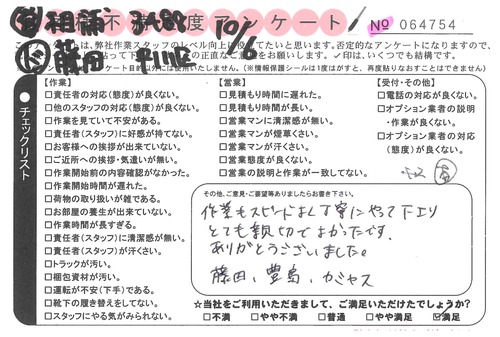 不 度アンケート
№ 064754
10/6
藤田
このアンケートは、弊社作業スタッフのレベル向上に役立てたいと思います。否定的なアンケートになりますので、
の正直なご意見をお願いします。✓印は、いくつでも結構です。
アンケート目的以外には使用いたしません。(※情報保護シールは1度はがすと、再度貼りなおすことはできません)
チェックリスト
【作業】
□責任者の対応(態度)が良くない。
□他のスタッフの対応(態度)が良くない。
□作業を見ていて不安がある。
□責任者(スタッフ)に好感が持てない。
□お客様への挨拶が出来ていない。
□ご近所への挨拶・気遣いが無い。
□作業開始前の内容確認がなかった。
□作業開始時間が遅れた。
□荷物の取り扱いが雑である。
□お部屋の養生が出来ていない。
□作業時間が長すぎる。
□責任者(スタッフ)に清潔感が無い。
□責任者(スタッフ)が汗くさい。
□トラックが汚い。
□梱包資材が汚い。
□運転が不安(下手)である。
□靴下の履き替えをしてない。
□スタッフにやる気がみられない。
【営業】
□見積もり時間に遅れた。
□見積もり時間が長い。
□営業マンに清潔感が無い。
□営業マンが煙草くさい。
□営業マンが汗くさい。
□営業態度が良くない。
□営業の説明と作業が一致してない。
【受付・その他】
□電話の対応が良くない。
□オプション業者の説明
・作業が良くない。
□オプション業者の対応
(態度)が良くない。
その他、ご意見・ご要望等ありましたらお書き下さい。
作業もスピードよく丁寧にやって下さり
とても親切でよかったです。
ありがとうございました。
藤田、豊島、カミヤス
☆当社をご利用いただきまして、ご満足いただけたでしょうか?
□不満 □やや不満 □普通 □やや満足 ☑満足